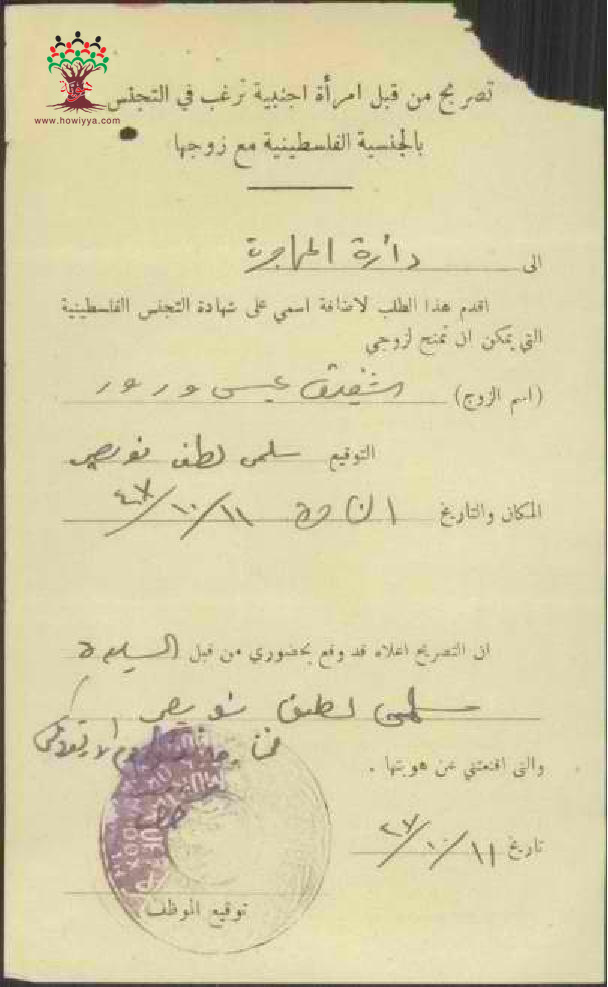 هوية
www.howiyya.com
تصريح من قبل امرأة اجنبية ترغب في التجنس
بالجنسية الفلسطينية مع زوجها
الى دائرة المهاجرة
اقدم هذا الطلب لاضافة اسمي على شهادة التجنس الفلسطينية
التي يمكن ان تمنح لزوجي
(اسم الزوج) شفيق عيسى ورور
التوقيع سلمى لطف
المكان والتاريخ ١١/١٠/
ان التصريح اعلاه قد وقع بحضوري من قبل السيدة
سلمى لطف
والتي اقنعتني عن هويتها .
تاريخ ١١/١٠/٢٧
توقيع الموظف